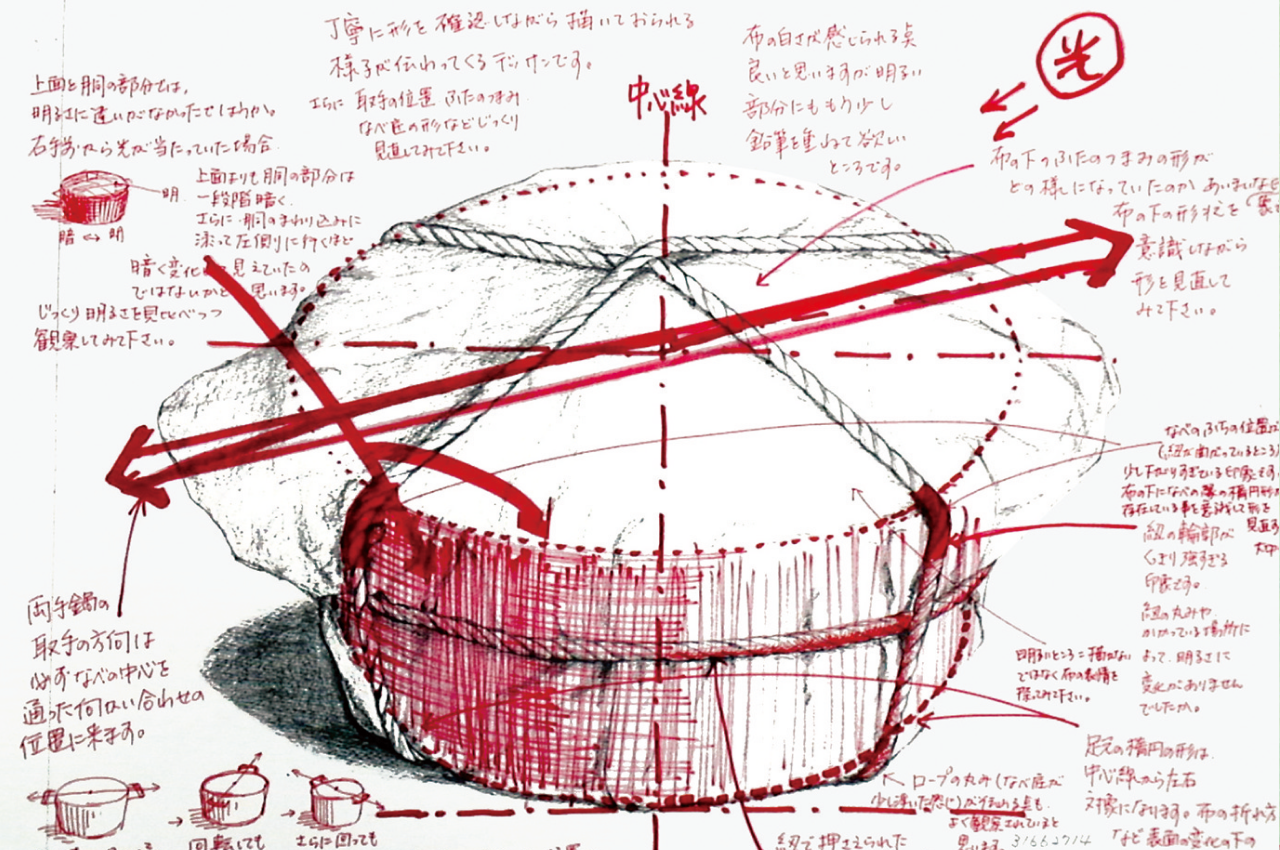 丁寧に形を確認しながら描いておられる
様子が伝わってくるデッサンです。
さらに 取手の位置 ふたのつまみ
なべ底の形などじっくり
見直してみて下さい。
上面と胴の部分では、
明るさに違いがなかったでしょうか。
右手前から光が当たっていた場合
明
暗 ↔ 明
上面よりも胴の部分は
一段階暗く、
さらに 胴のまわり込みに
添って左側りに行くほど
暗く変化 見えていたの
ではないかと 思います。
じっくり明るさを見比べつつ
観察してみて下さい。
中心線
布の白さが感じられる点
良いと思いますが明るい
部分にももう少し
鉛筆を重ねて欲しい
ところです。
光
布の下のふたのつまみの形が
どの様になっていたのか あいまいな
布の下の形状を
意識しながら
形を見直して
みて下さい。
なべのふちの位置が
(紐が曲がっているところ)
少し下がりすぎている印象です。
布の下になべの縁の楕円形が
存在している事を意識して形を
見直す
紐の輪郭が
くっきり強すぎる
印象です。
紐の丸みや
かかっている場所に
よって、明るさに
変化がありません
でしたか。
明るいところ=描かない
ではなく布の表情を
探ってみて下さい。
足元の楕円の形は、
中心線から左右
対象になります。布の折れ方
など表面の変化の下の
ロープの丸み(なべ底が
少し浮いた感じ)が伝わる点も
よく観察されていると
思います。
31662714
紐で押さえられた
両手鍋の
取手の方向は
必ずなべの中心を
通った向い合わせの
位置に来ます。
回転しても
さらに回っても